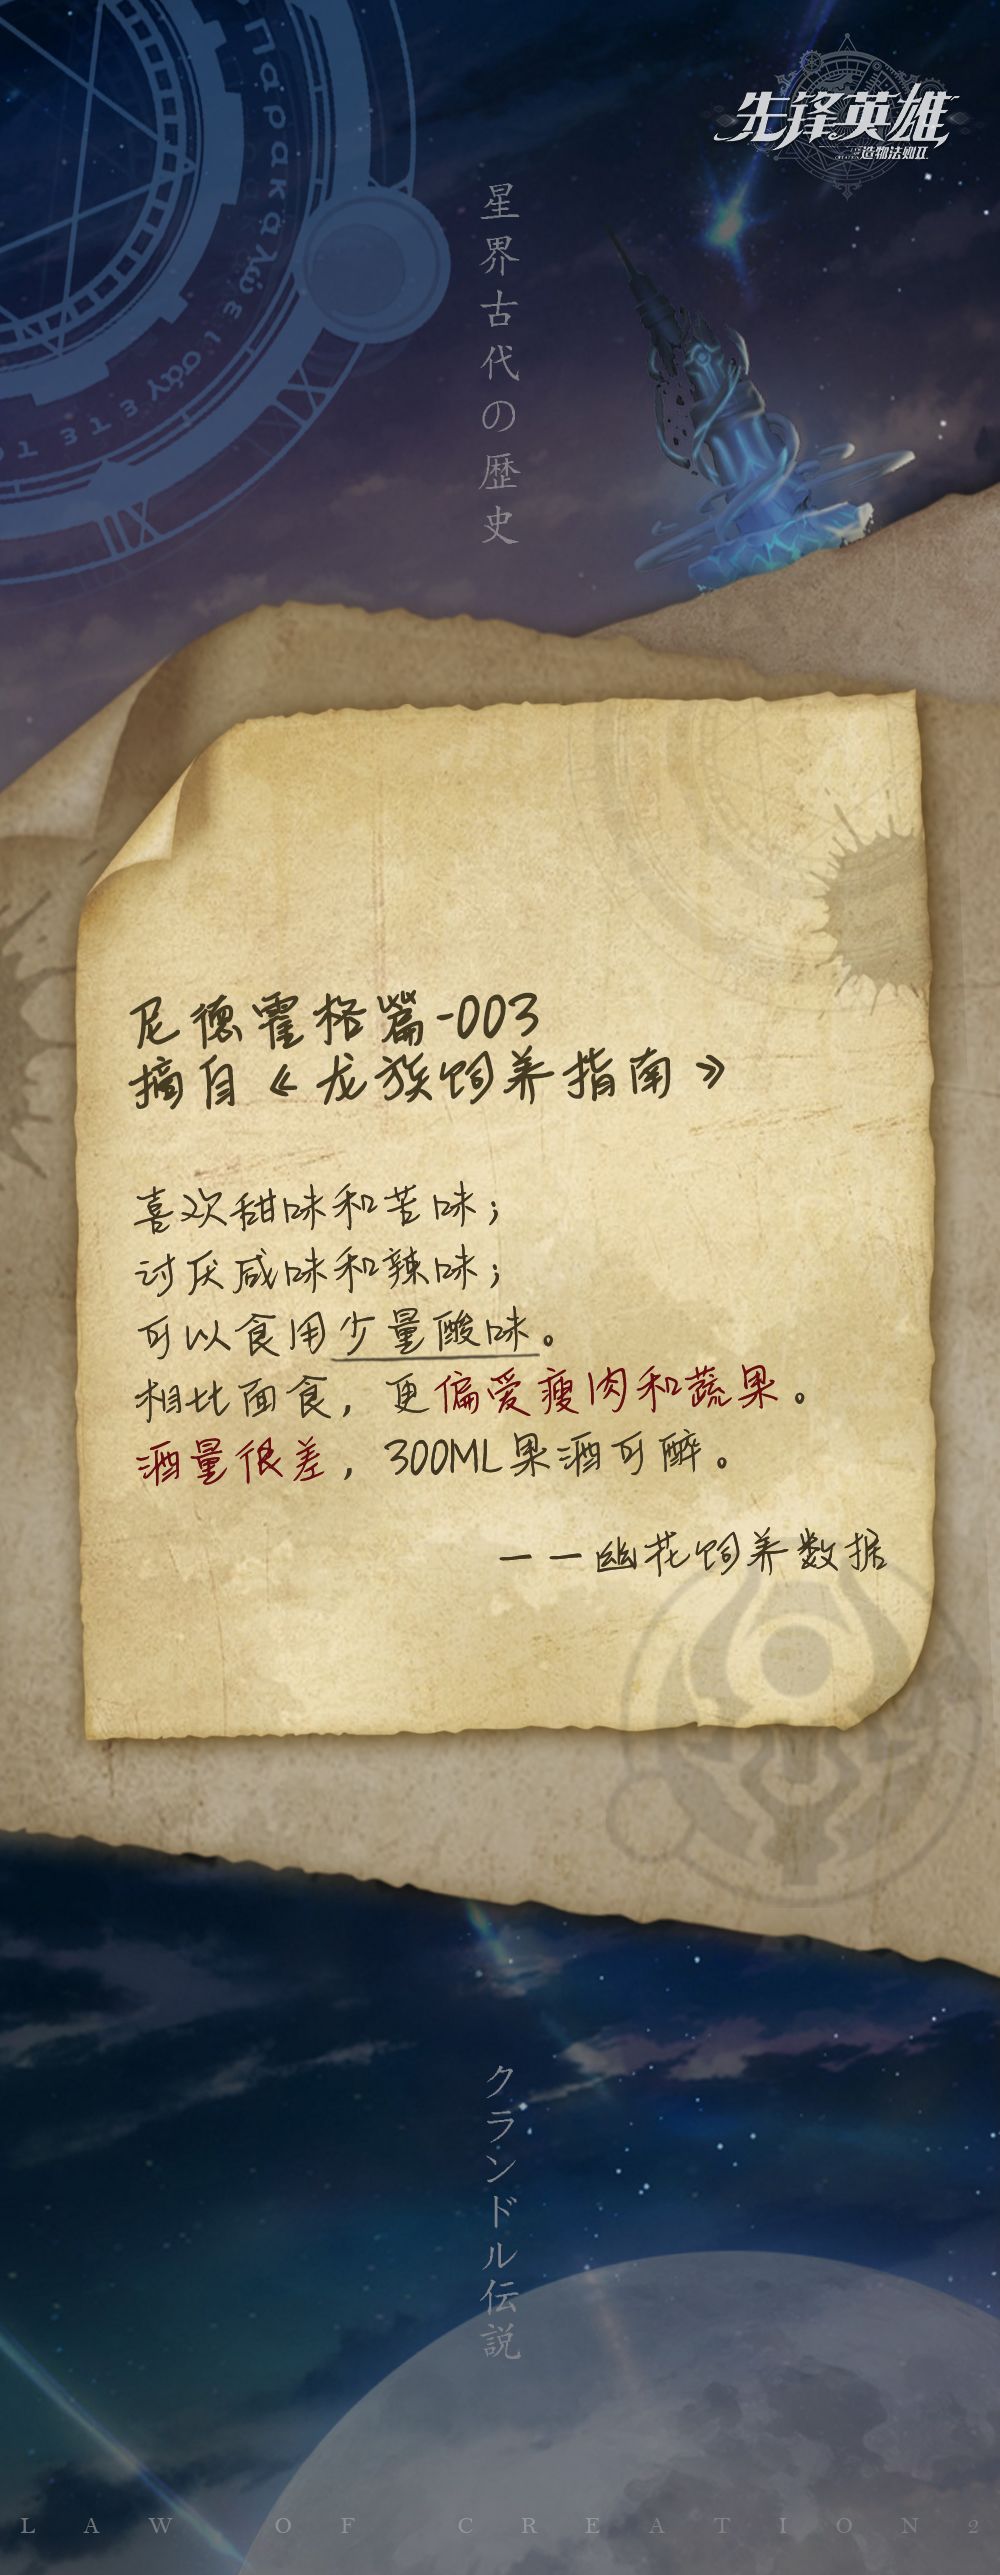 先锋英雄
造物法则II
星界古代の歴史
尼德霍格篇-003
摘自《龙族饲养指南》
喜欢甜味和苦味；
讨厌咸味和辣味；
可以食用少量酸味。
相比面食，更偏爱瘦肉和蔬果。
酒量很差，300ML果酒可醉。
——幽花饲养数据
クランドル伝説
LAW OF CREATION2